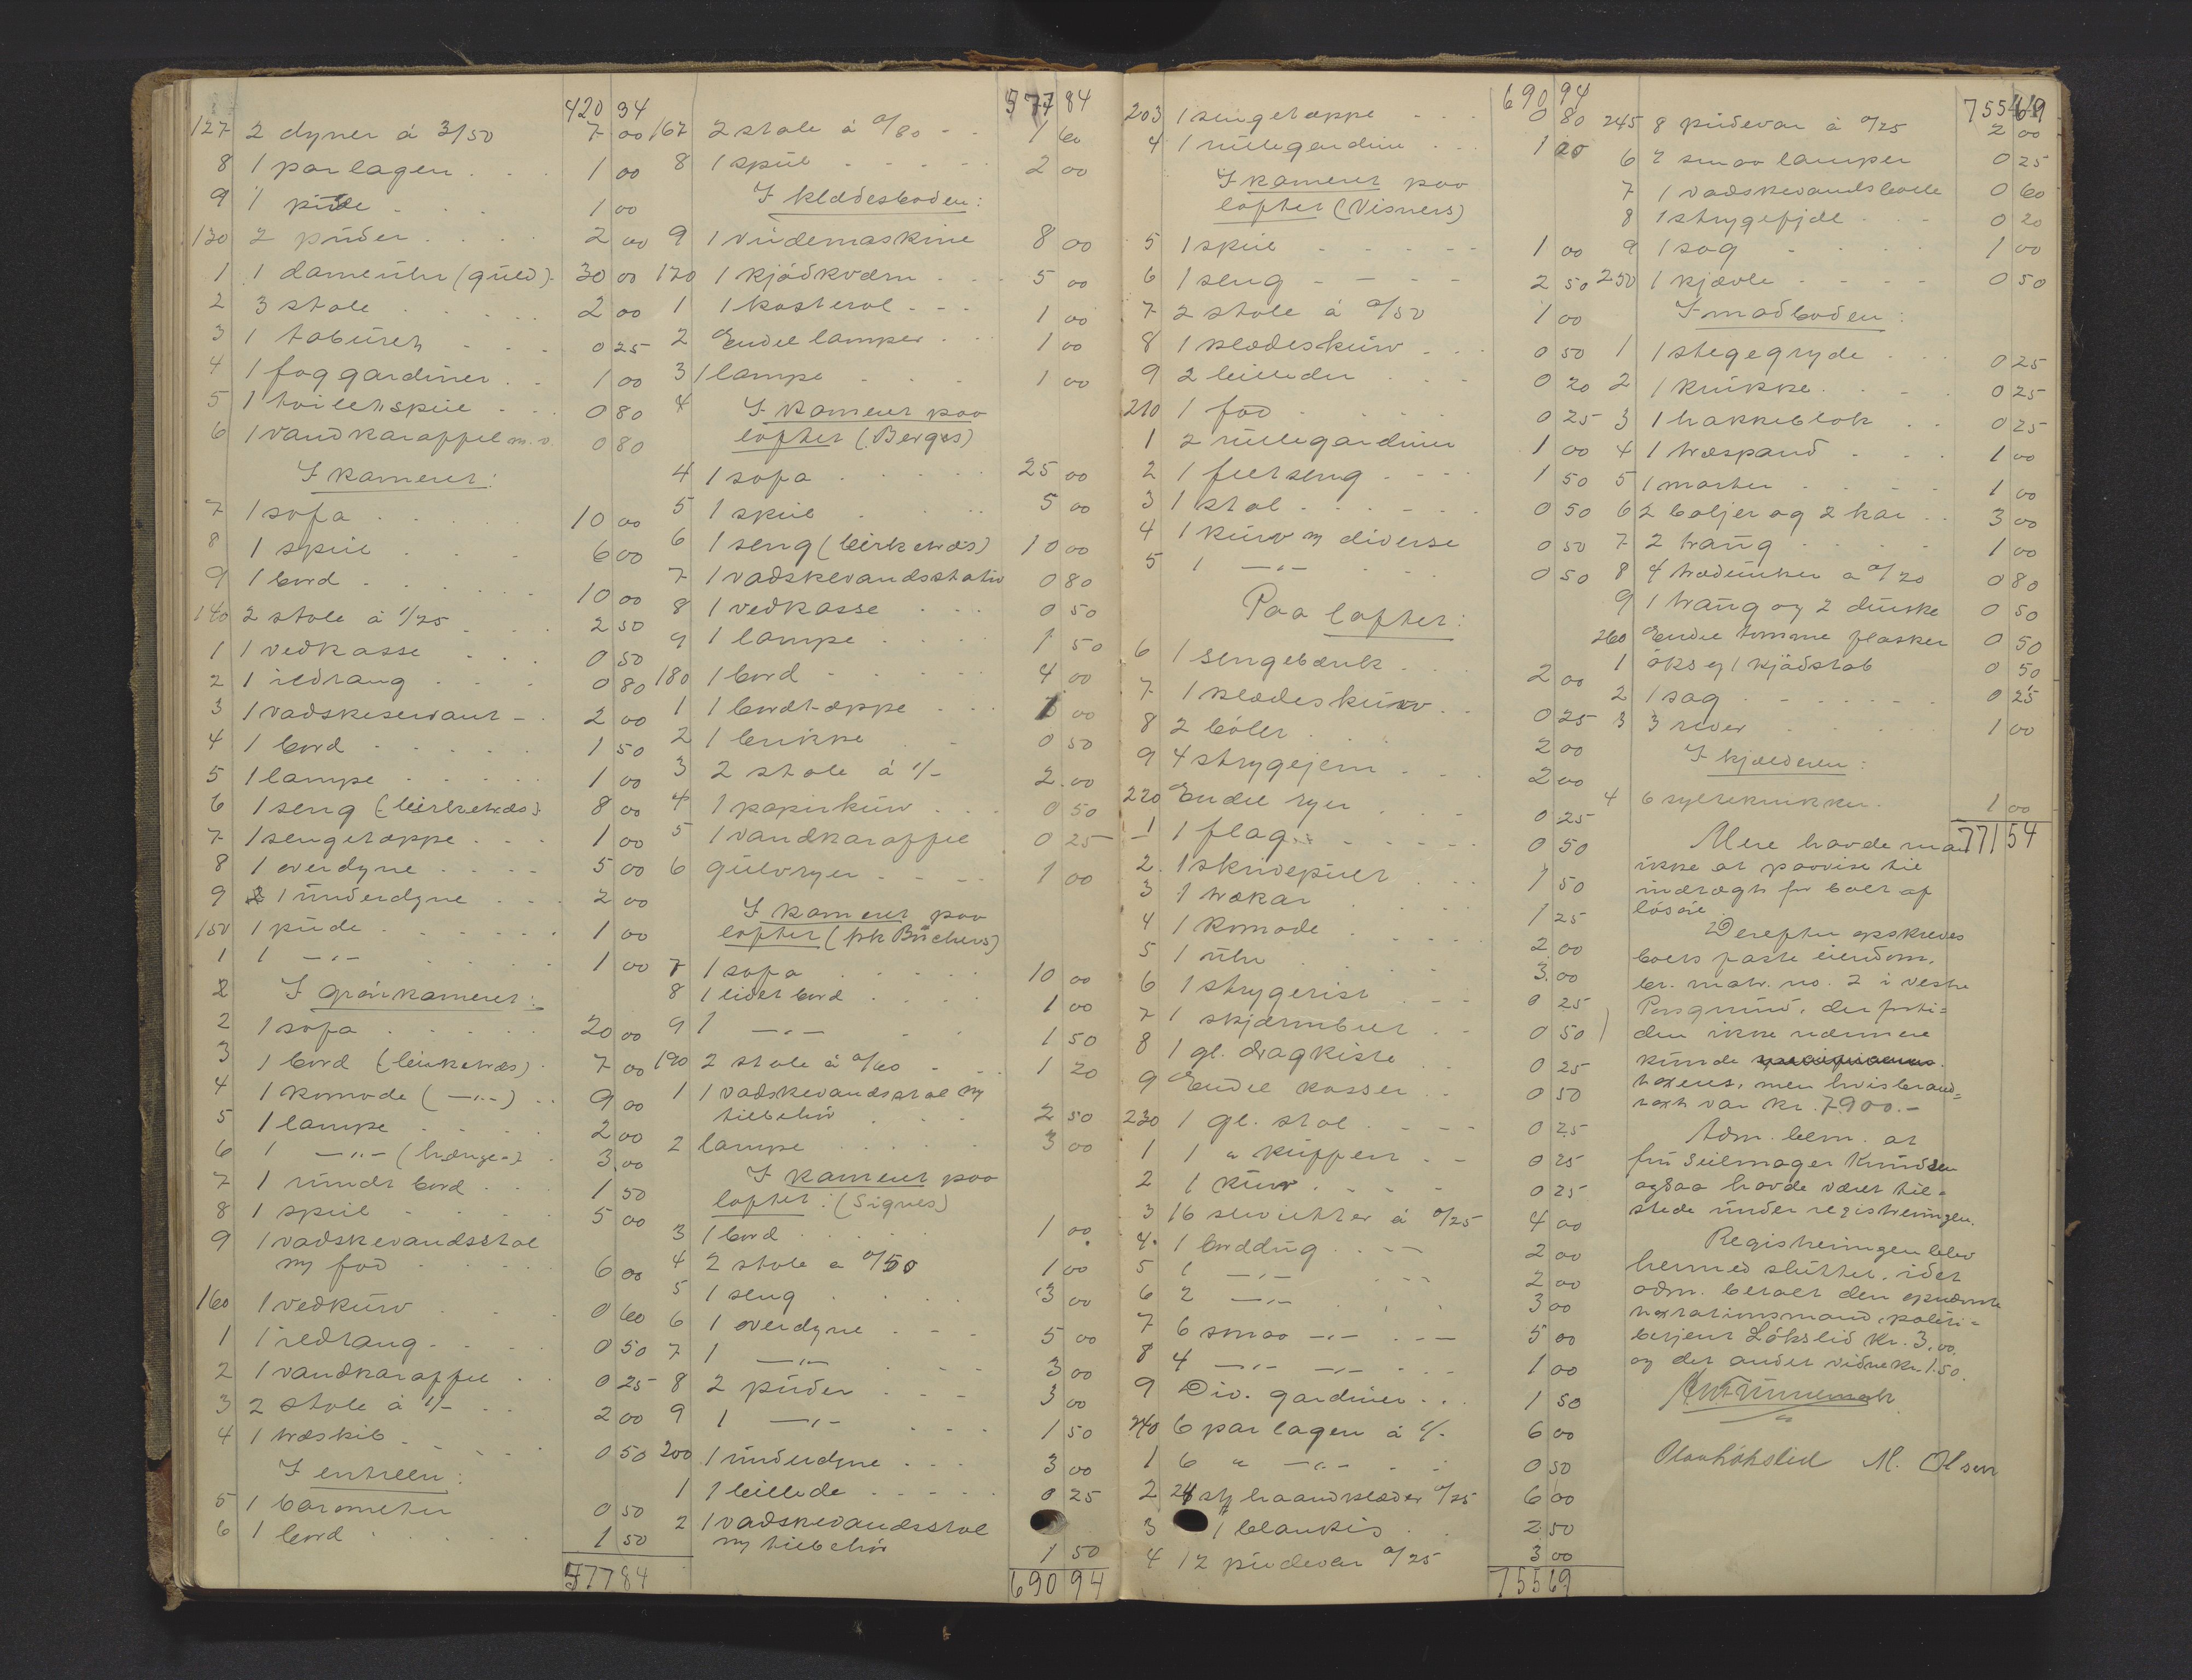 420 34
127 2 dyner á 3/50 7 00
8 1 par lagen . . . 1 00
9 1 pude . . . 1 00
130 2 puder . . . . 2 00
1 1 dameuhr (guld) . 30 00
2 3 stole . . . . . 2 00
3 1 taburet . . . 0 25
4 1 fag gardiner . . 1 00
5 1 toiletspeil . . . 0 80
6 1 vandkaraffel m. v. 0 80
I kamerer:
7 1 sofa . . . . . 10 00
8 1 speil . . . . 6 00
9 1 bord . . . . . 10 00
140 2 stole á 1/25 . . . 2 50
1 1 vedkasse . . . 0 50
2 1 ildtang . . . 0 80
3 1 vadskeservant - . 2 00
4 1 bord . . . . . 1 50
5 1 lampe . . . . . 1 00
6 1 seng (birketræs) 8 00
7 1 sengetæppe . . . 1 00
8 1 overdyne . . . . 5 00
9 1 underdyne . . . 2 00
150 1 pude . . . . . . 1 00
1 1 -"- . . . . 1 00
2 I grönkamerer:
2 1 sofa . . . . . 20 00
3 1 bord (birketræs) . 7 00
4 1 komode (-"-) . . 9 00
5 1 lampe . . . . 2 00
6 1 -"- (hænge-) . 3.00
7 1 rundt bord . . . 1 50
8 1 speil . . . . 5 00
9 1 vadskevandsstol
m/ fad . . . . 6 00
160 1 vedkurv . . . 0 60
1 1 ildtang . . . . 0 50
2 1 vandkaraffel . . 0 25
3 2 stole á 1/- . . 2 00
4 1 træskib . . . . . 0 50
I entreen:
5 1 barometer 0 50
6 1 bord . . . . . 1 50
577 84
577 84
167 2 stole á 0/80 - - 1 60
8 1 speil . . . . . 2 00
I klædesboden:
9 1 vridemaskine 8 00
170 1 kjödkværn . . . 5 00
1 1 kasterol . - - 1 00
2 Endel lamper . . . 1 00
3 1 lampe . . . . 1 00
4 I kamerer paa
lofter (Berges)
4 1 sofa . . . . . 25 00
5 1 speil . . . . . 5 00
6 1 seng (birketræs) 10 00
7 1 vadskevandsstativ 0 80
8 1 vedkasse . . . 0 50
9 1 lampe . . . . 1 50
180 1 bord . . . . . 4 00
1 1 bordtæppe . . . 1 00
2 1 krukke . - 0 50
3 2 stole á 1/- 2.00
4 1 papirkurv . . . 0 50
5 1 vandkaraffel 0 25
6 gulvryer . . . . 1 00
I kamerer paa
lofter (frk Büchers)
7 1 sofa . . . . . 10 00
8 1 lidet bord . . . . 1 00
9 1 -"- . . 1 50
190 2 stole á 0/60 . . . 1 20
1 1 vadskevandsstol m/
tilbehör . . . 2 50
2 lampe . . . . . 3 00
I kamerer paa
lofter: (Signes)
3 1 bord . . . . . 1 00
4 2 stole a 0/50 1 00
5 1 seng . . . . 3 00
6 1 overdyne . . . 5 00
7 1 -"- . . . 3 00
8 2 puder . . . 3 00
9 1 -"- . . . 1 50
200 1 underdyne . . . 3 00
1 1 billede . . . . . 0 25
2 1 vadskevandsstol
m/ tilbehör 1 50
690 94
690 94
203 1 sengetæppe . . . 0 80
4 1 rullegardin . . . 1 00
I kamerer paa
lofter (Visners)
5 1 speil - - - - - 1 00
6 1 seng - - - - 2 50
7 2 stole á 0/50 1 00
8 1 klædeskurv . . . 0 50
9 2 billeder . . . 0 20
210 1 fad . . . . . 0 25
1 2 rullegardiner 1 00
2 1 feltseng . . . 1 50
3 1 stol . . . . . . 0 50
4 1 kurv m/ diverse 0 50
5 1 -"- . . . 0 50
Paa lofter:
6 1 sengebænk . . 2 00
7 1 klædeskurv . . 0 25
8 2 böler . . . . 2 00
9 4 strygejern . . . 2 00
220 Endel ryer . . . 0 25
1 1 flag . . . . . . 0 50
2 1 skrivepult . . . 1 50
3 1 trækar . . . . . 1 25
4 1 komode . . . . . 2 00
5 1 uhr . . . . . 3.00
6 1 strygerist . . . 0 25
7 1 skjærmbret . . 0 50
8 1 gl. dragkiste . . 0 25
9 Endel kasser . . 0 50
230 1 gl. stol . . . . 0 25
1 1 " kuffert . - 0 25
2 1 kurv . . . . 0 25
3 16 servietter á 0/25 4 00
4 1 borddug . . . - 2 00
5 1 -"- . . . 2 00
6 2 -"- . . . 3 00
7 6 smaa -"- . . - 5 00
8 4 -"- -"- . . . 1 00
9 Div. gardiner . . . 1 50
240 6 par lagen á 1/- 6 00
1 6 " -"- . . 0 50
2 24 stk haandklæder 0/25 6 00
3 1 . . 2 50
4 12 pudevar 0/25 3 00
755 69
755 69
245 8 pudevar á 0/25 2 00
6 2 smaa lamper 0 25
7 1 vadskevandsbolle 0 60
8 1 strygefjel . . - 0 20
9 1 sag - . . . . 1 00
250 1 kjævle . . . . 0 50
I madboden:
1 1 stegegryde . . . 0 25
2 1 krukke . . . . 0 25
3 1 hakkeblok . . 0 25
4 1 træspand . . . 1 00
5 1 morter . . . . 1 00
6 2 baljer og 2 kar . . 3 00
7 2 traug . . . . . 1 00
8 4 trædunker a 0/20 0 80
9 1 traug og 2 dunke 0 50
260 Endel tomme flasker 0 50
1 öks og 1 kjödstab 0 50
2 1 sag . . . . . . 0 25
3 3 river . . . . . 1 00
I kjælderen:
4 6 syltekrukker . 1 00
771 54
Mere havde man
ikke at paavise til
indtægt for boet af
lösöre.
Derefter opskreves
boets faste eiendom,
br. matr. no. 2 i vestre
Porsgrund, der forti=
den ikke nærmere
kunde
taxeres, men hvis brand=
taxt var kr. 7.900.-
Adm. bem. at
fru Seilmager Knudsen
ogsaa havde været til=
stede under registreringen.
Registreringen blev
hermed sluttet, idet
adm. betalt den opnævnte
taxtationsmand, politi=
betjent Lökslid kr. 3,00.
og det andet vidne kr. 1.50.
M. Olsen